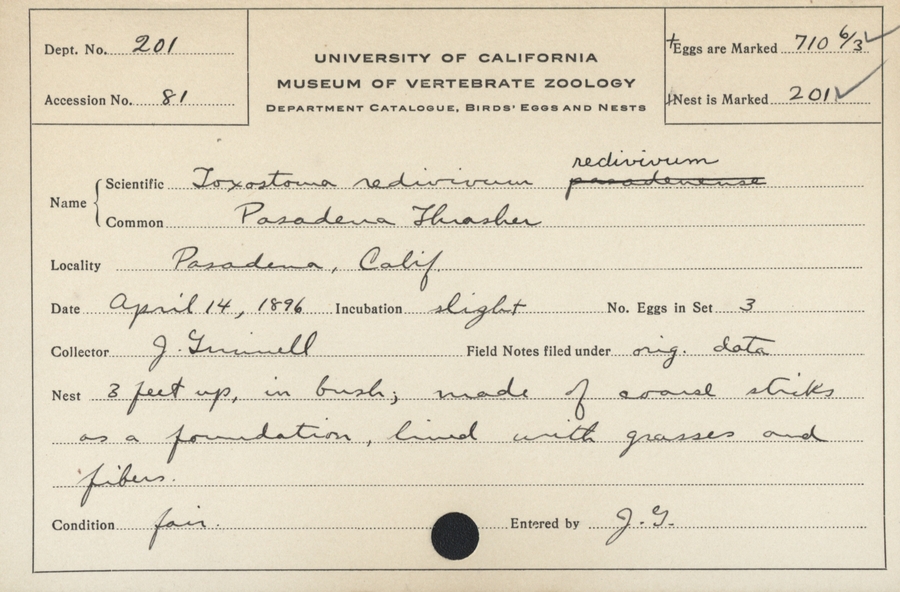 Dept. No. 201
Accession No. 81
UNIVERSITY OF CALIFORNIA
MUSEUM OF VERTEBRATE ZOOLOGY
DEPARTMENT CATALOGUE, BIRDS' EGGS AND NESTS
Eggs are Marked 710 6/3
Nest is Marked 201
redivivum
Name Scientific Toxostoma redivivum pasadenense
Common Pasadena Thrasher
Locality Pasadena, Calif.
Date April 14, 1896 Incubation slight No. Eggs in Set 3
Collector J. Grinnell Field Notes filed under orig. data
Nest 3 feet up, in bush; made of coarse sticks
as a foundation, lined with grasses and
fibers.
Condition fair. Entered by J. G.